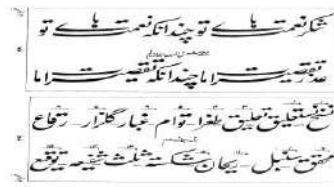 شکر نعمت ہائے تو چندانکہ نعمت ہائے تو
عذر تقصیرات ما چندانکہ تقصیرات ما
نسخ نستعلیق تعلیق طغرا توام غبار گلزار رقاع
محقق سنبل ریحان شکستہ ثلث شفیعہ توقیع